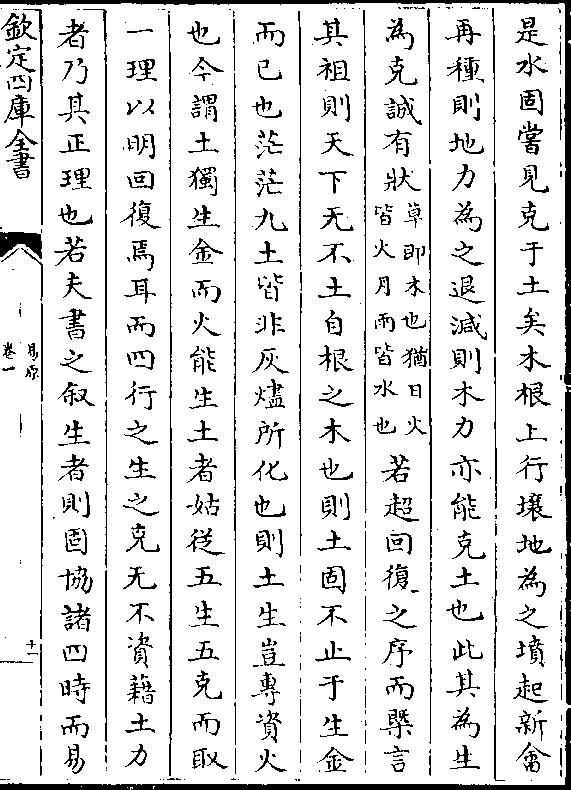 是水固嘗見克于土矣木根上行壤地為之墳起新畬
再種則地力為之退減則木力亦能克土也此其為生
為克誠有狀草即木也猶日火皆火月雨皆水也若超回復之序而槩言
其祖則天下无不土自根之木也則土固不止于生金
而已也茫茫九土皆非灰燼所化也則土生豈專資火
也今謂土獨生金而火能生土者姑從五生五克而取
一理以明回復焉耳而四行之生之克无不資藉土力
者乃其正理也若夫書之叙生者則固協諸四時而易
欽定四庫全書
易原
卷一
十